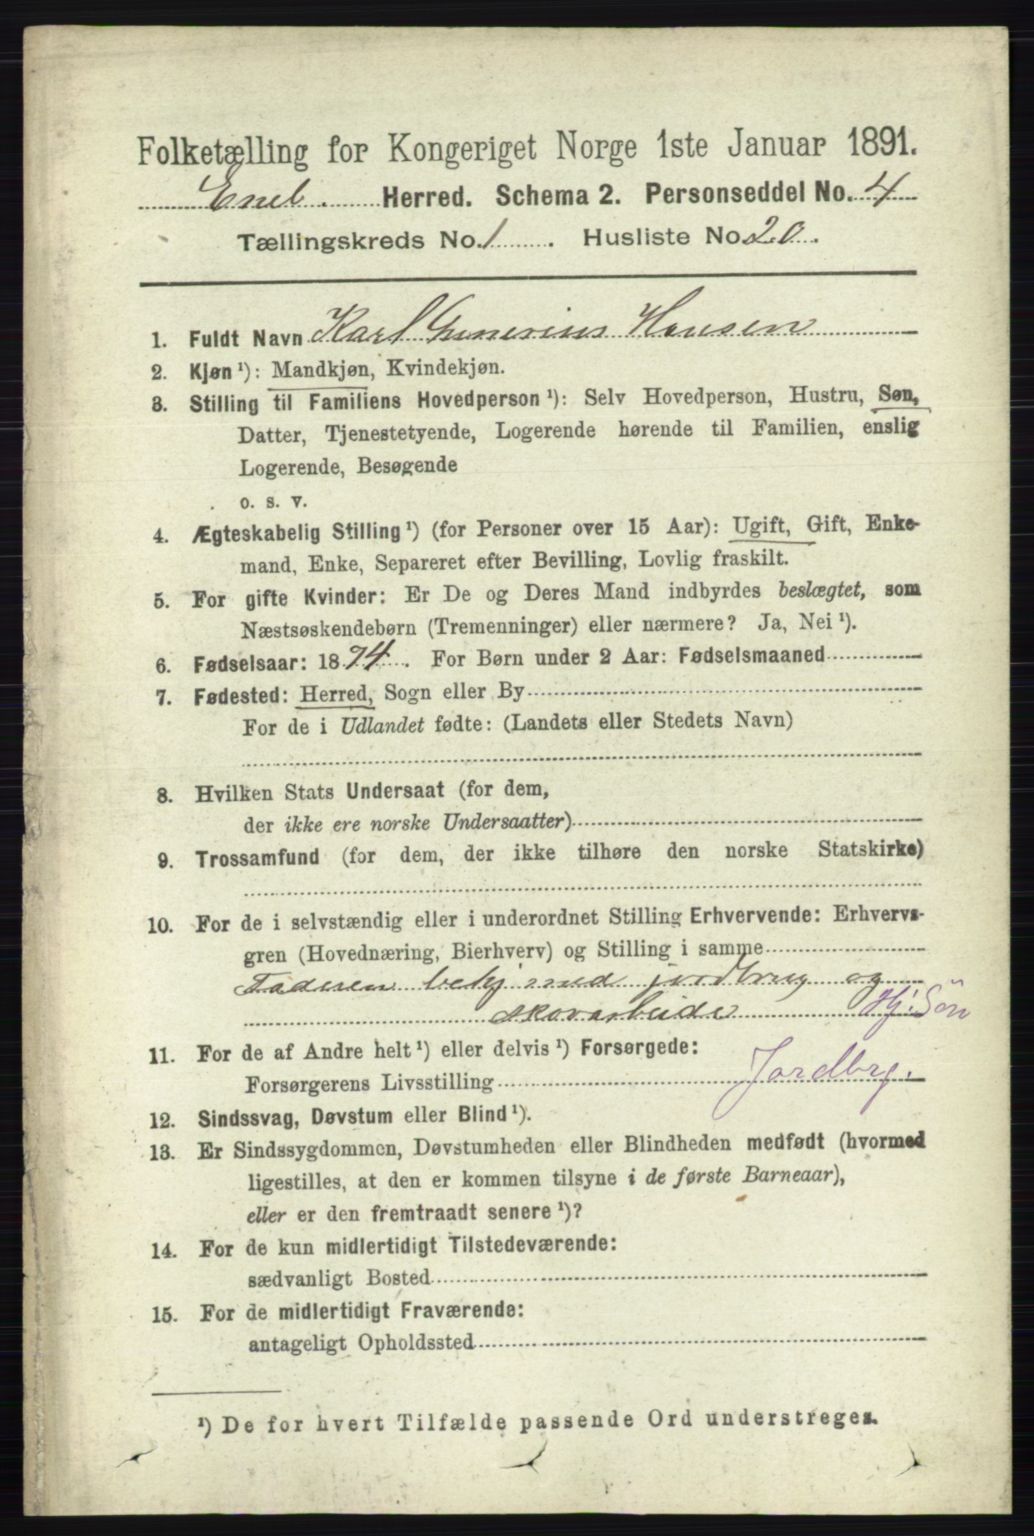 Folketælling for Kongeriget Norge 1ste Januar 1891.
Eneb. Herred. Schema 2. Personseddel No. 4
Tællingskreds No. 1. Husliste No. 20.
1. Fuldt Navn Karl Gunerius Hansen
2. Kjøn ¹): Mandkjøn, Kvindekjøn.
3. Stilling til Familiens Hovedperson ¹): Selv Hovedperson, Hustru, Søn,
Datter, Tjenestetyende, Logerende hørende til Familien, enslig
Logerende, Besøgende
o. s. v.
4. Ægteskabelig Stilling ¹) (for Personer over 15 Aar): Ugift, Gift, Enke-
mand, Enke, Separeret efter Bevilling, Lovlig fraskilt.
5. For gifte Kvinder: Er De og Deres Mand indbyrdes beslægtet, som
Næstsøskendebørn (Tremenninger) eller nærmere? Ja, Nei ¹).
6. Fødselsaar: 1874. For Børn under 2 Aar: Fødselsmaaned
7. Fødested: Herred, Sogn eller By
For de i Udlandet fødte: (Landets eller Stedets Navn)
8. Hvilken Stats Undersaat (for dem,
der ikke ere norske Undersaatter)
9. Trossamfund (for dem, der ikke tilhøre den norske Statskirke)
10. For de i selvstændig eller i underordnet Stilling Erhvervende: Erhvervs-
gren (Hovednæring, Bierhverv) og Stilling i samme
Faderen besk med jordbrug og
skovarbeide Hj. Søn
11. For de af Andre helt ¹) eller delvis ¹) Forsørgede:
Forsørgerens Livsstilling Jordbrg.
12. Sindssvag, Døvstum eller Blind ¹).
13. Er Sindssygdommen, Døvstumheden eller Blindheden medfødt (hvormed
ligestilles, at den er kommen tilsyne i de første Barneaar),
eller er den fremtraadt senere ¹)?
14. For de kun midlertidigt Tilstedeværende:
sædvanligt Bosted
15. For de midlertidigt Fraværende:
antageligt Opholdssted
¹) De for hvert Tilfælde passende Ord understreges.